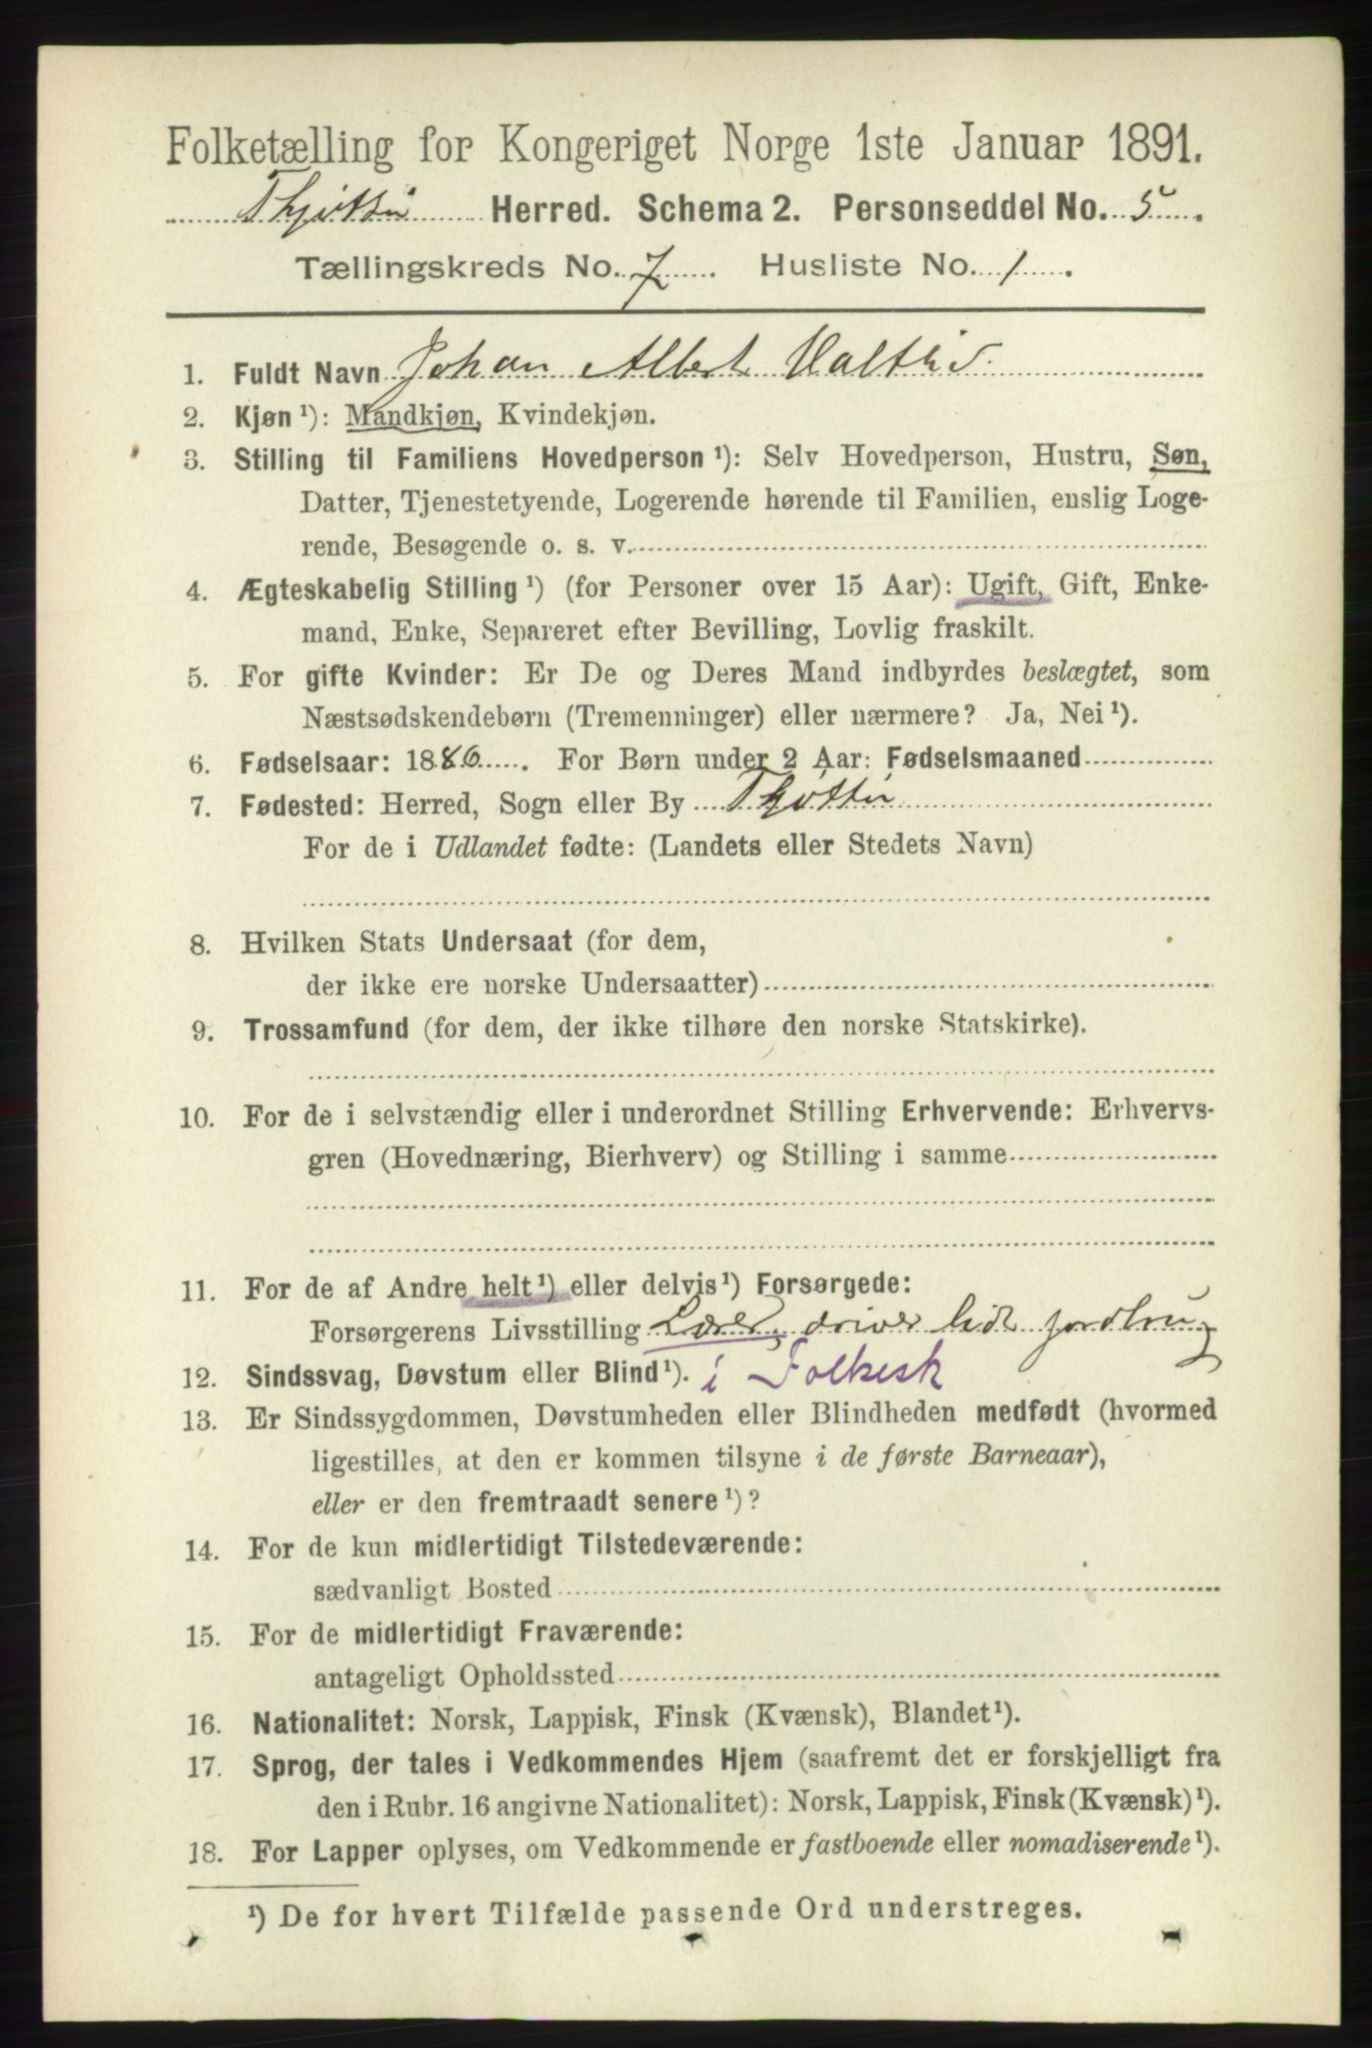 Folketælling for Kongeriget Norge 1ste Januar 1891.
Thjøttø Herred. Schema 2. Personseddel No. 5.
Tællingskreds No. 7. Husliste No. 1.
1. Fuldt Navn Johan Albert
2. Kjøn ¹): Mandkjøn, Kvindekjøn.
3. Stilling til Familiens Hovedperson ¹): Selv Hovedperson, Hustru, Søn,
Datter, Tjenestetyende, Logerende hørende til Familien, enslig Loge-
rende, Besøgende o. s. v.
4. Ægteskabelig Stilling ¹) (for Personer over 15 Aar): Ugift, Gift, Enke-
mand, Enke, Separeret efter Bevilling, Lovlig fraskilt.
5. For gifte Kvinder: Er De og Deres Mand indbyrdes beslægtet, som
Næstsødskendebørn (Tremenninger) eller nærmere? Ja, Nei ¹).
6. Fødselsaar: 1886. For Børn under 2 Aar: Fødselsmaaned
7. Fødested: Herred, Sogn eller By Thjøttø
For de i Udlandet fødte: (Landets eller Stedets Navn)
8. Hvilken Stats Undersaat (for dem,
der ikke ere norske Undersaatter)
9. Trossamfund (for dem, der ikke tilhøre den norske Statskirke).
10. For de i selvstændig eller i underordnet Stilling Erhvervende: Erhvervs-
gren (Hovednæring, Bierhverv) og Stilling i samme
11. For de af Andre helt ¹) eller delvis ¹) Forsørgede:
Forsørgerens Livsstilling Lærer, driver lidt jordbrug
12. Sindssvag, Døvstum eller Blind ¹). i Folkesk
13. Er Sindssygdommen, Døvstumheden eller Blindheden medfødt (hvormed
ligestilles, at den er kommen tilsyne i de første Barneaar),
eller er den fremtraadt senere ¹)?
14. For de kun midlertidigt Tilstedeværende:
sædvanligt Bosted
15. For de midlertidigt Fraværende:
antageligt Opholdssted
16. Nationalitet: Norsk, Lappisk, Finsk (Kvænsk), Blandet ¹).
17. Sprog, der tales i Vedkommendes Hjem (saafremt det er forskjelligt fra
den i Rubr. 16 angivne Nationalitet): Norsk, Lappisk, Finsk (Kvænsk) ¹).
18. For Lapper oplyses, om Vedkommende er fastboende eller nomadiserende ¹).
¹) De for hvert Tilfælde passende Ord understreges.